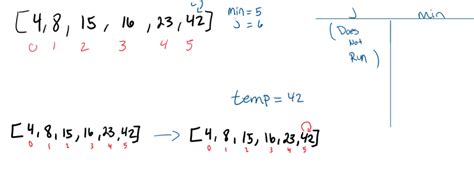 [4, 8, 15, 16, 23, 42]
0 1 2 3 4 5
min = 5
J = 6
J min
(Does
Not
Run)
temp = 42
[4, 8, 15, 16, 23, 42] → [4, 8, 15, 16, 23, 42]
0 1 2 3 4 5 0 1 2 3 4 5